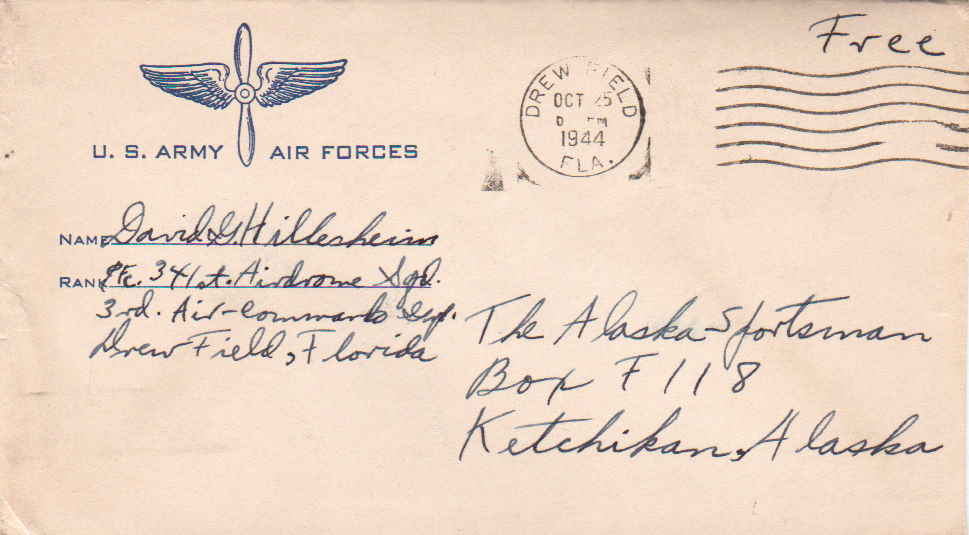 Free
DREW FIELD
OCT 25
PM
1944
FLA.
U. S. ARMY AIR FORCES
NAME David G. Hillesheim
RANK Pfc. 341st. Airdrome Sqd.
3rd. Air-Commando
Drew Field, Florida
The Alaska-Sportsman
Box F 118
Ketchikan, Alaska